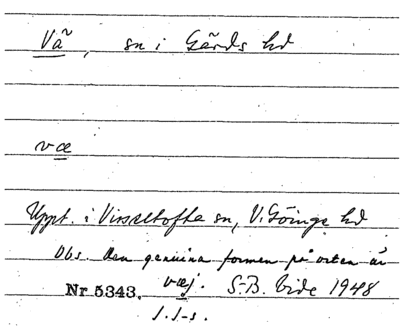 Vä, sn i Gärds hd
væ
Uppt. i Vinsletofte sn, V. Göinge hd
Obs. Den genuina formen på orten är
Nr. 5343. væj. S.B. Vide 1948
l.l-s.